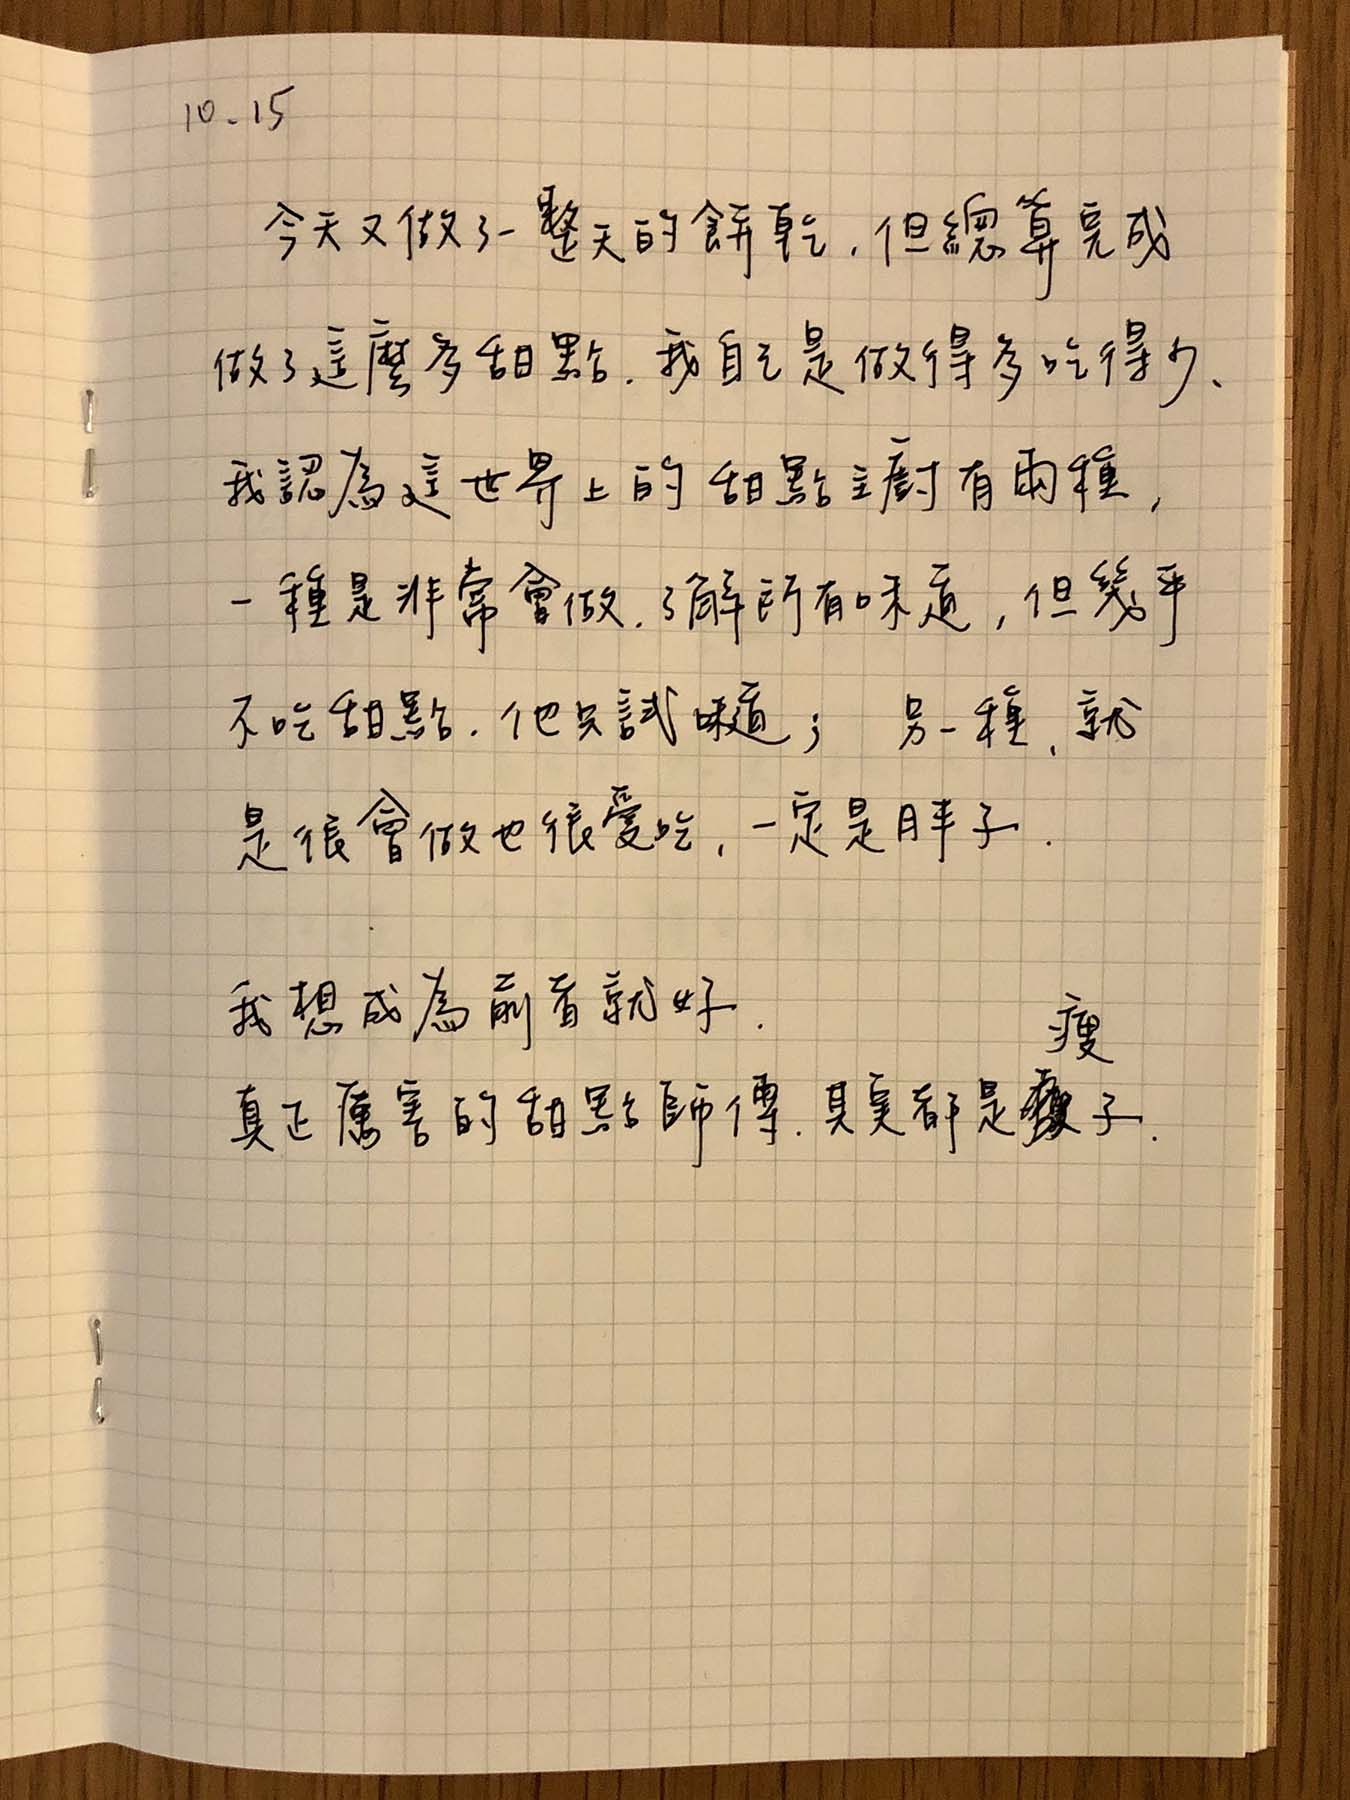 10.15
今天又做了一整天的餅乾，但總算完成
做了這麼多甜點．我自己是做得多吃得少、
我認為這世界上的甜點主廚有兩種，
一種是非常會做．了解所有味道，但幾乎
不吃甜點．他只試味道；另一種、就
是很會做也很愛吃，一定是胖子．
我想成為前者就好．
真正厲害的甜點師傅．其實都是瘦子．